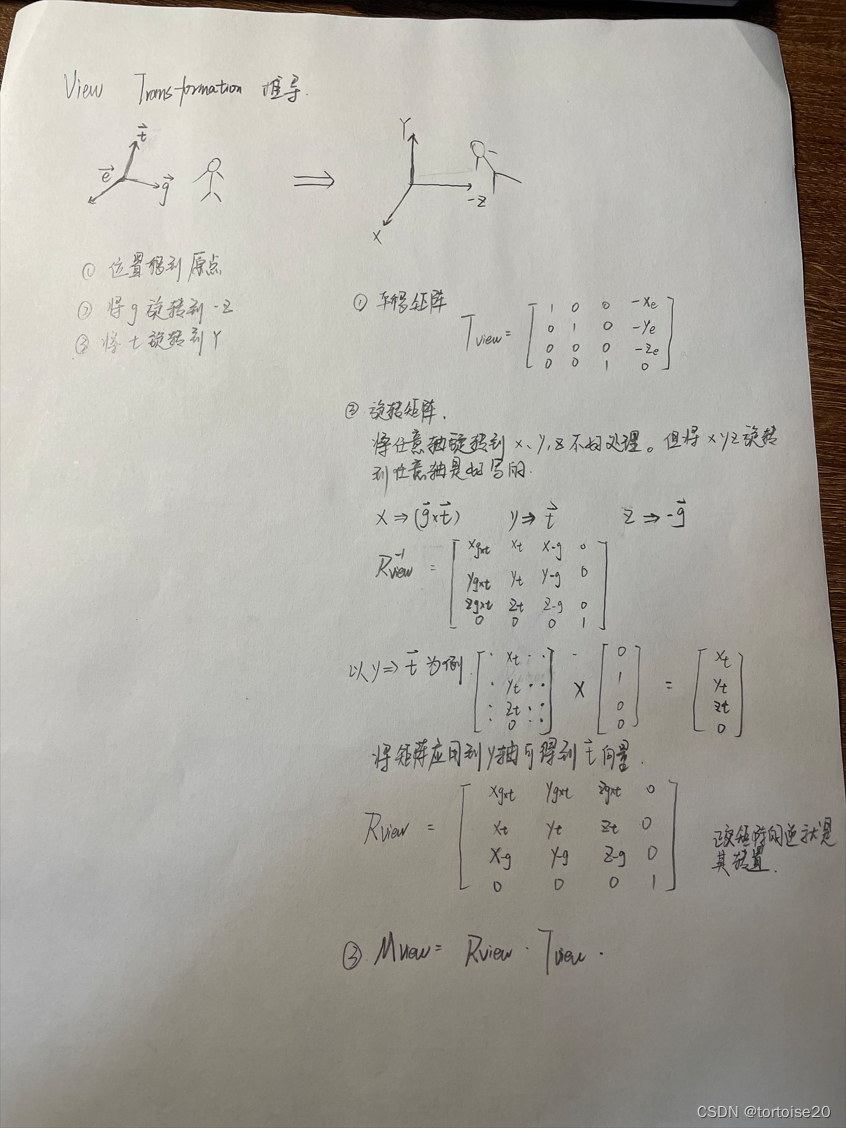 View Transformation 推导.
t
e
g
⇒
Y
-Z
X
① 位置移到原点
② 将g旋转到-Z
③ 将t旋转到Y
① 平移矩阵
Tview = [ 1 0 0 -Xe
0 1 0 -Ye
0 0 0 -Ze
0 0 1 0 ]
② 旋转矩阵.
将任意轴旋转到X、Y、Z不好处理。但将XYZ旋转
到任意轴是好写的.
X ⇒ (g×t) Y ⇒ t Z ⇒ -g
Rview⁻¹ = [ Xg×t Xt X-g 0
Yg×t Yt Y-g 0
Zg×t Zt Z-g 0
0 0 0 1 ]
以Y⇒t为例. [ · Xt · · ] × [ 0 ] = [ Xt ]
[ · Yt · · ] [ 1 ] [ Yt ]
[ : Zt : : ] [ 0 ] [ Zt ]
[ 0 ] [ 0 ] [ 0 ]
将矩阵应用到Y轴可得到t向量.
Rview = [ Xg×t Yg×t Zg×t 0
Xt Yt Zt 0
X-g Y-g Z-g 0
0 0 0 1 ]
正交矩阵的逆就是
其转置.
③ Mview = Rview · Tview .
CSDN @tortoise20